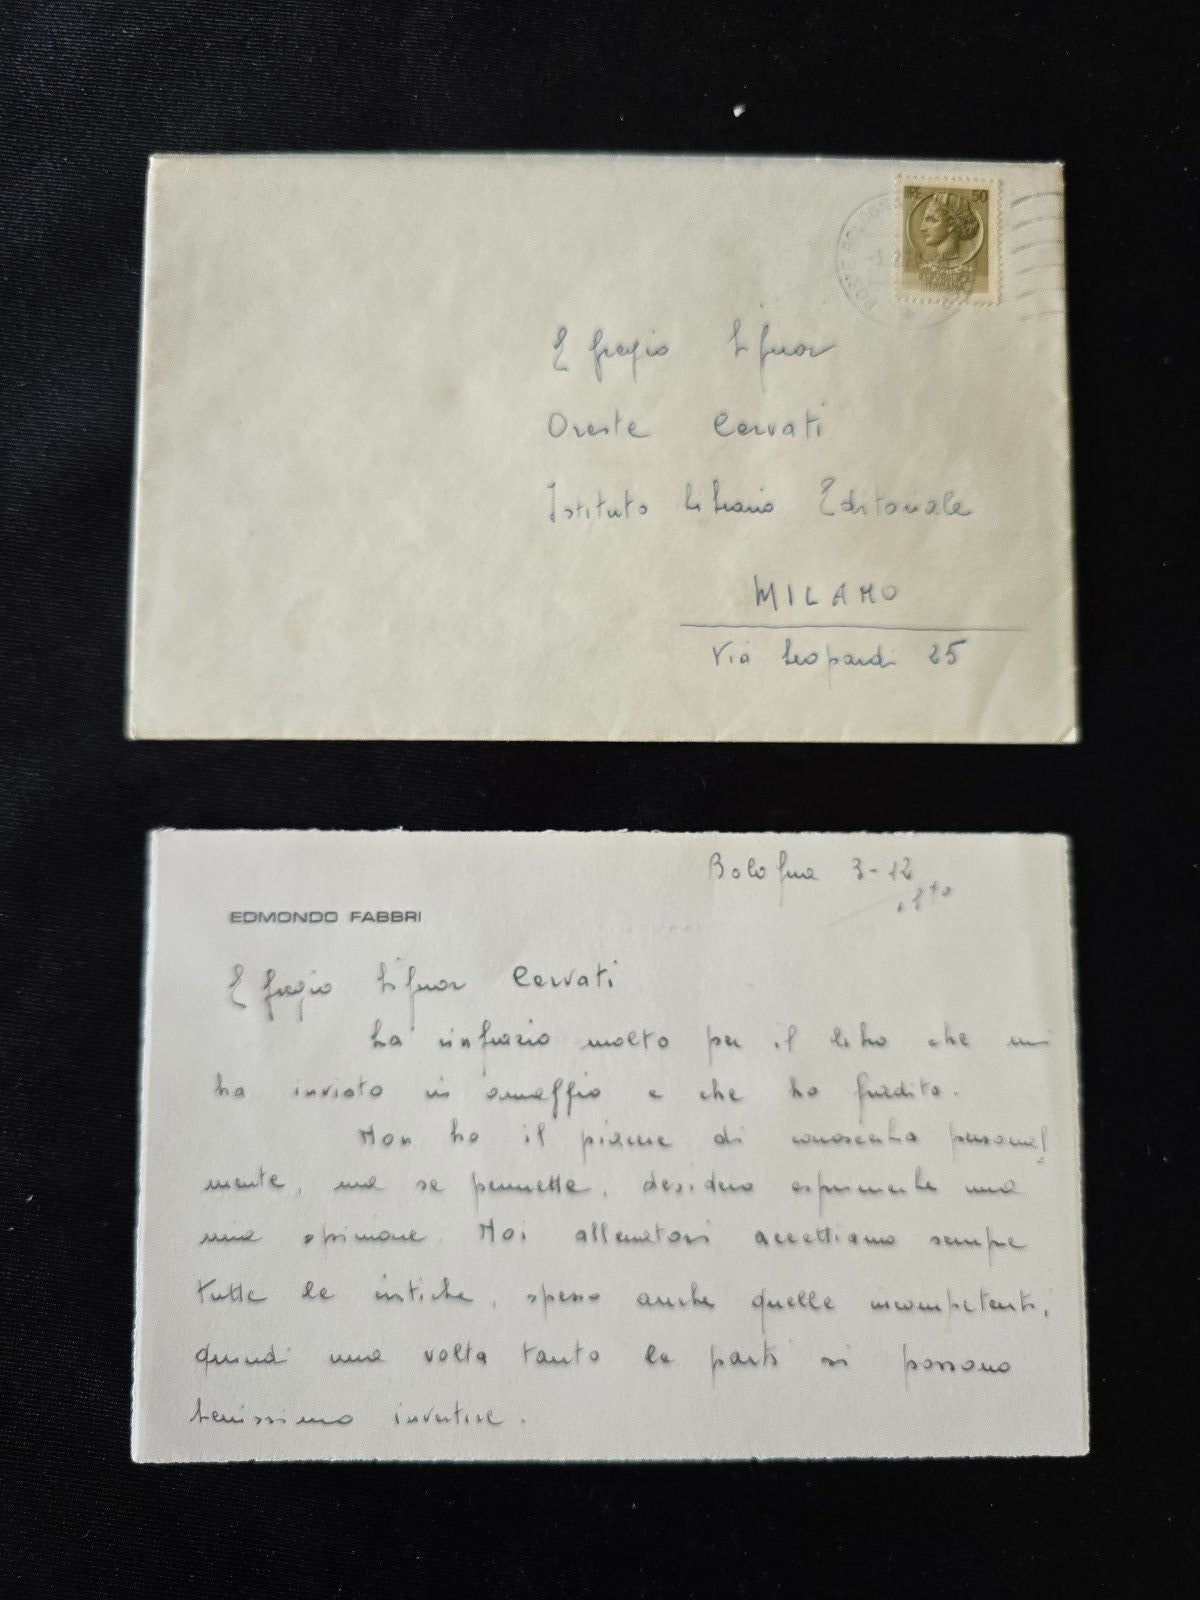 LIRE 50
REPUBBLICA
ITALIANA
POSTE BOLOGNA
Egregio Signor
Oreste Cervati
Istituto Librario Editoriale
MILANO
Via Leopardi 25
Bologna 3-12
EDMONDO FABBRI
Egregio Signor Cervati
La ringrazio molto per il libro che mi
ha inviato in omaggio e che ho gradito.
Non ho il piacere di conoscerla personal
mente, ma se permette, desidero esprimerle una
mia opinione. Noi allenatori accettiamo sempre
tutte le critiche, spesso anche quelle incompetenti,
quindi una volta tanto le parti si possono
benissimo invertire.